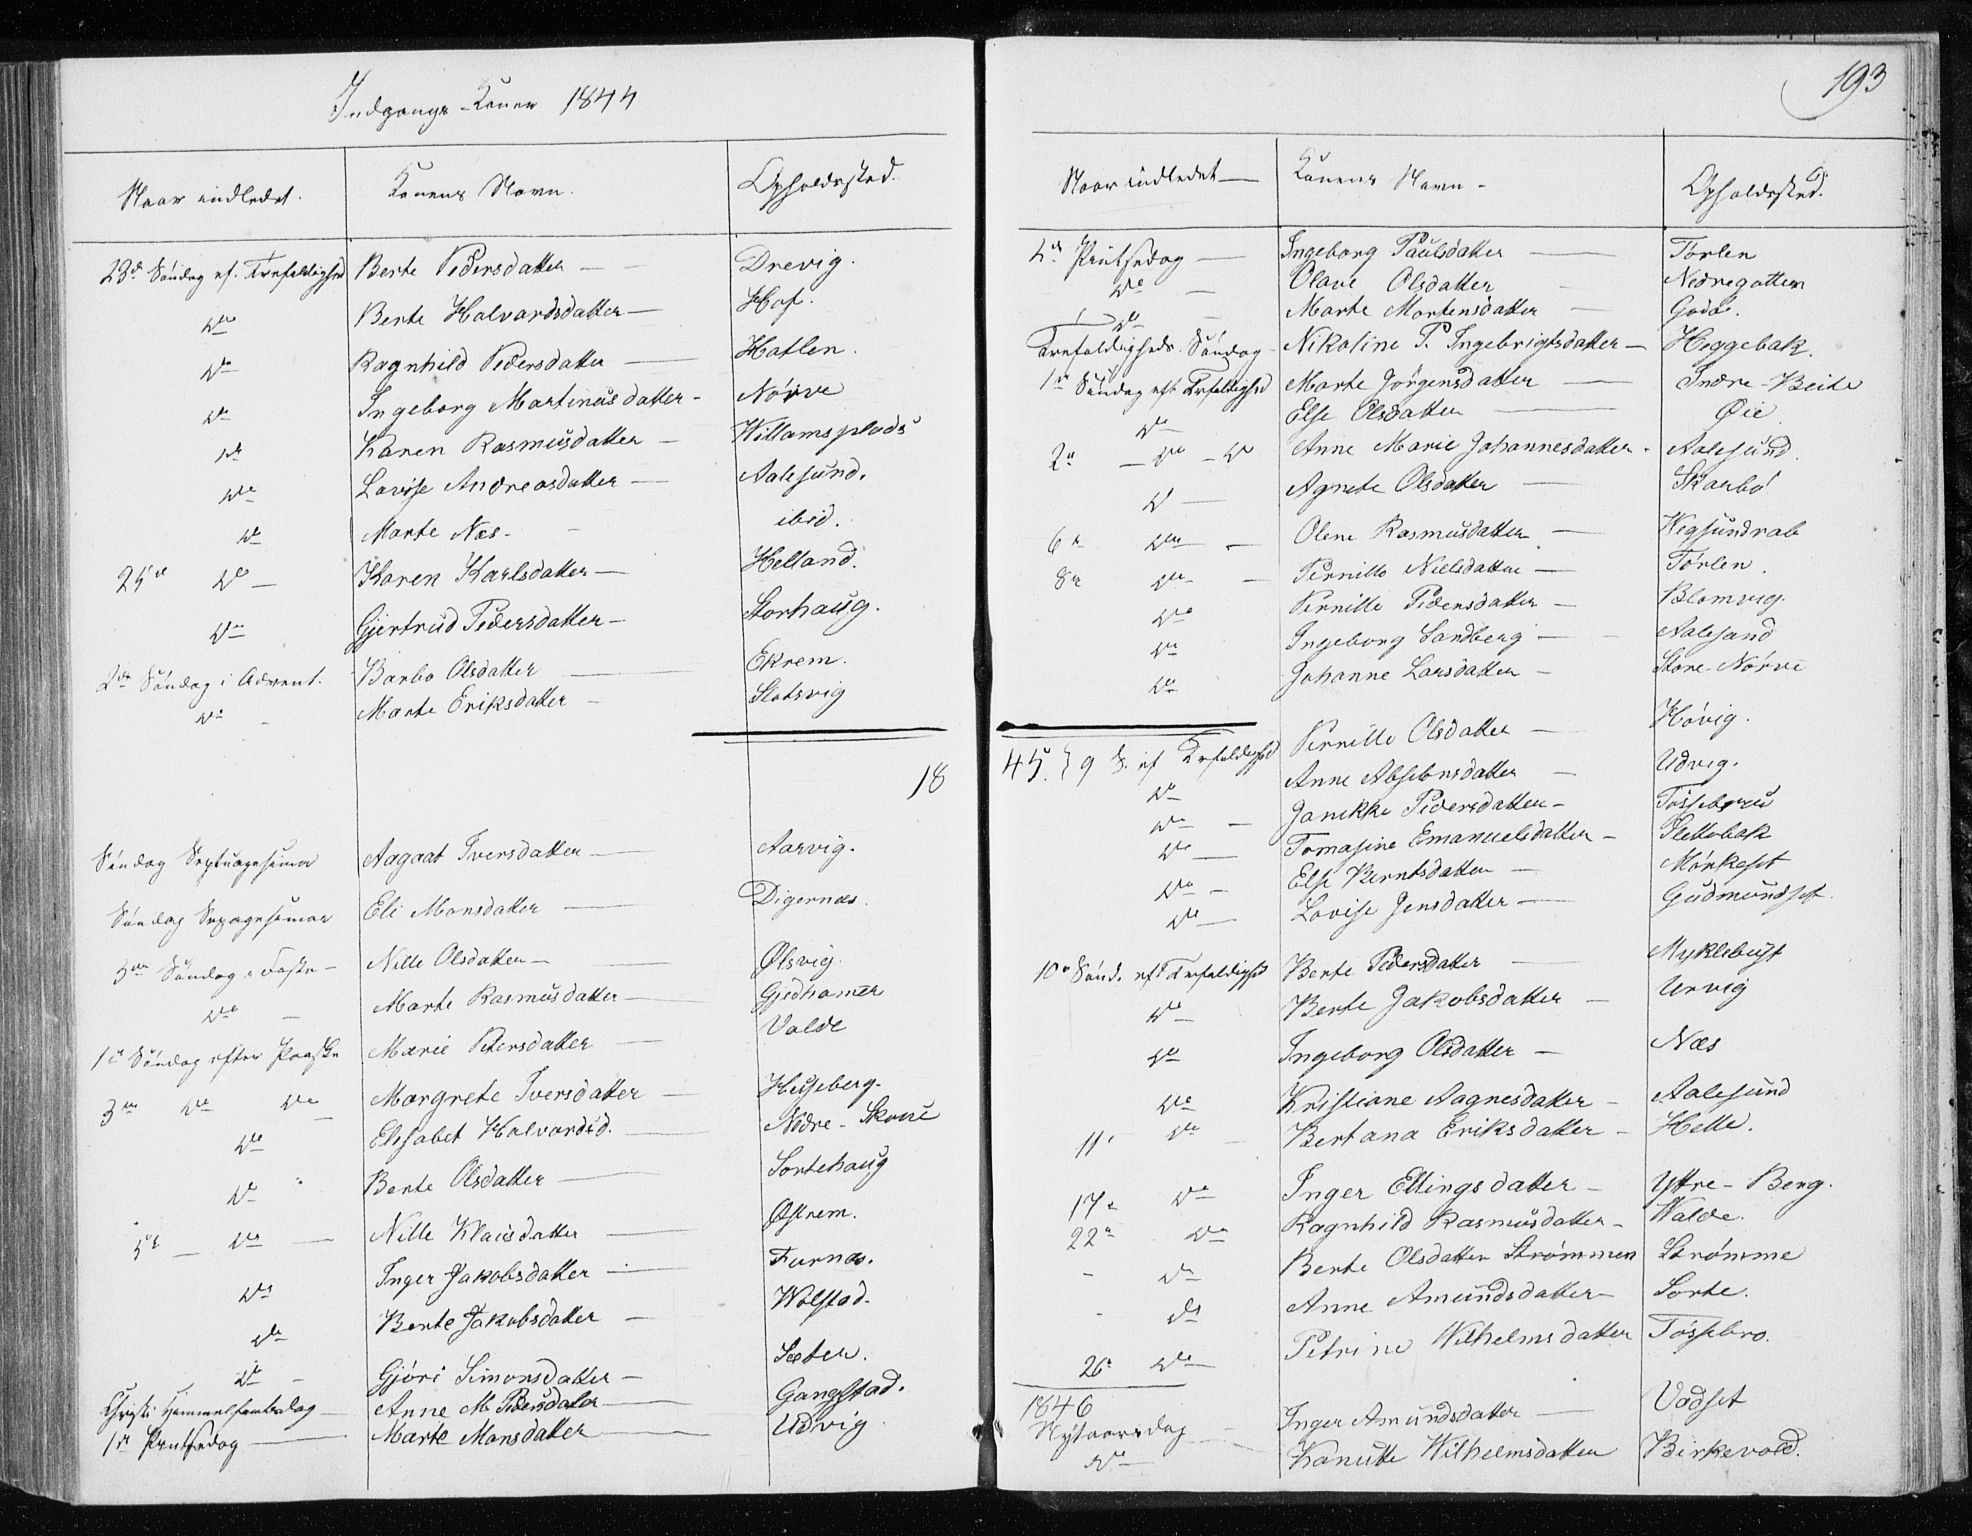 Indgangs-Koner 1844
Naar indledet. Konens Navn. Opholdssted.
23de Søndag ef. Trefoldighed Berte Pedersdatter — Drevig.
do Berte Halvardsdatter — Hof.
do Ragnhild Pedersdatter — Hatlen.
do Ingeborg Martinusdatter - Nørve
do Karen Rasmusdatter — Willamsplads
do Lovise Andreasdatter — Aalesund.
do Marte Næs - ibid.
25de do — Karen Karlsdatter — Helland.
do Gjertrud Pedersdatter — Storhaug.
2den Søndag i Advent. Barbo Olsdatter — Ekrem.
do - Marte Eriksdatter - Slotsvig
18
Søndag Septuagesima Aagaat Iversdatter — Aarvig.
Søndag Sexagesima Eli Monsdatter — Digernæs.
3die Søndag i Faste — Nille Olsdatter — Ølsvig.
do — Marte Rasmusdatter — Gjedhamer
1ste Søndag efter Paaske Marie Petersdatter — Valde
3die do do Margrete Iversdatter — Hesseberg.
do Elisabet Halvardsd. — Nedre-Skoue
do Berte Olsdatter — Sortehaug
5te — do — Nille Klausdatter — Østrem.
do Inger Jakobsdatter — Furnæs.
do Berte Jakobsdatter — Wolstad.
do - Gjøri Simonsdatter — Sæter.
Christi Himmelfartsdag — Anne M. Pedersdatter Gangstad.
1ste Pintsedag — Marte Monsdatter Udvig
193
Naar indledet — Konens Navn - Opholdssted.
2den Pintsedag — Ingeborg Paulsdatter — Tørlen
do — Olave Olsdatter Nedregotten
do Marte Mortensdatter — Godø.
Trefoldigheds Søndag Nikoline P. Ingebrigtsdatter — Heggebak.
1ste Søndag eft Trefoldighed Marte Jørgensdatter — Indre-Beite
do Else Olsdatter — Øie
2den — do — do Anne Marie Johannesdatter - Aalesund.
do — Agnete Olsdatter — Skarbø
6te do — Olene Rasmusdatter — Wegsundrab
8de do — Pernille Nielsdatter — Tørlen.
do Pernille Pedersdatter — Blomvig.
do Ingeborg Sandberg — Aalesund
do Johanne Larsdatter — Store-Nørve
45. 9 S. ef Trefoldighed Pernille Olsdatter — Høvig.
do Anne Abselonsdatter — Udvig.
do — Janikke Pedersdatter — Tøssebrou
do — Tomasine Emanuelsdatter — Slettebak
do - Else Berntsdatter — Mørkeset
do — Lovise Jensdatter — Gudmundset.
10de Sønd. eft Trefoldighed Berte Pedersdatter — Myklebust
do Berte Jakobsdatter — Urvig
do Ingeborg Olsdatter — Næs
do Kristiane Aagnesdatter — Aalesund
11te do — Bertana Eriksdatter — Helle.
17de do Inger Ellingsdatter — Yttre-Berg.
22de do Ragnhild Rasmusdatter — Walde.
- do Berte Olsdatter Strømmen Strømme
- do Anne Amundsdatter — Sorte.
26de do — Petrine Wilhelmsdatter Tøssebro.
1846
Nytaarsdag — Inger Amundsdatter — Vadset
do — Kanutte Wilhelmsdatter Birkevold.